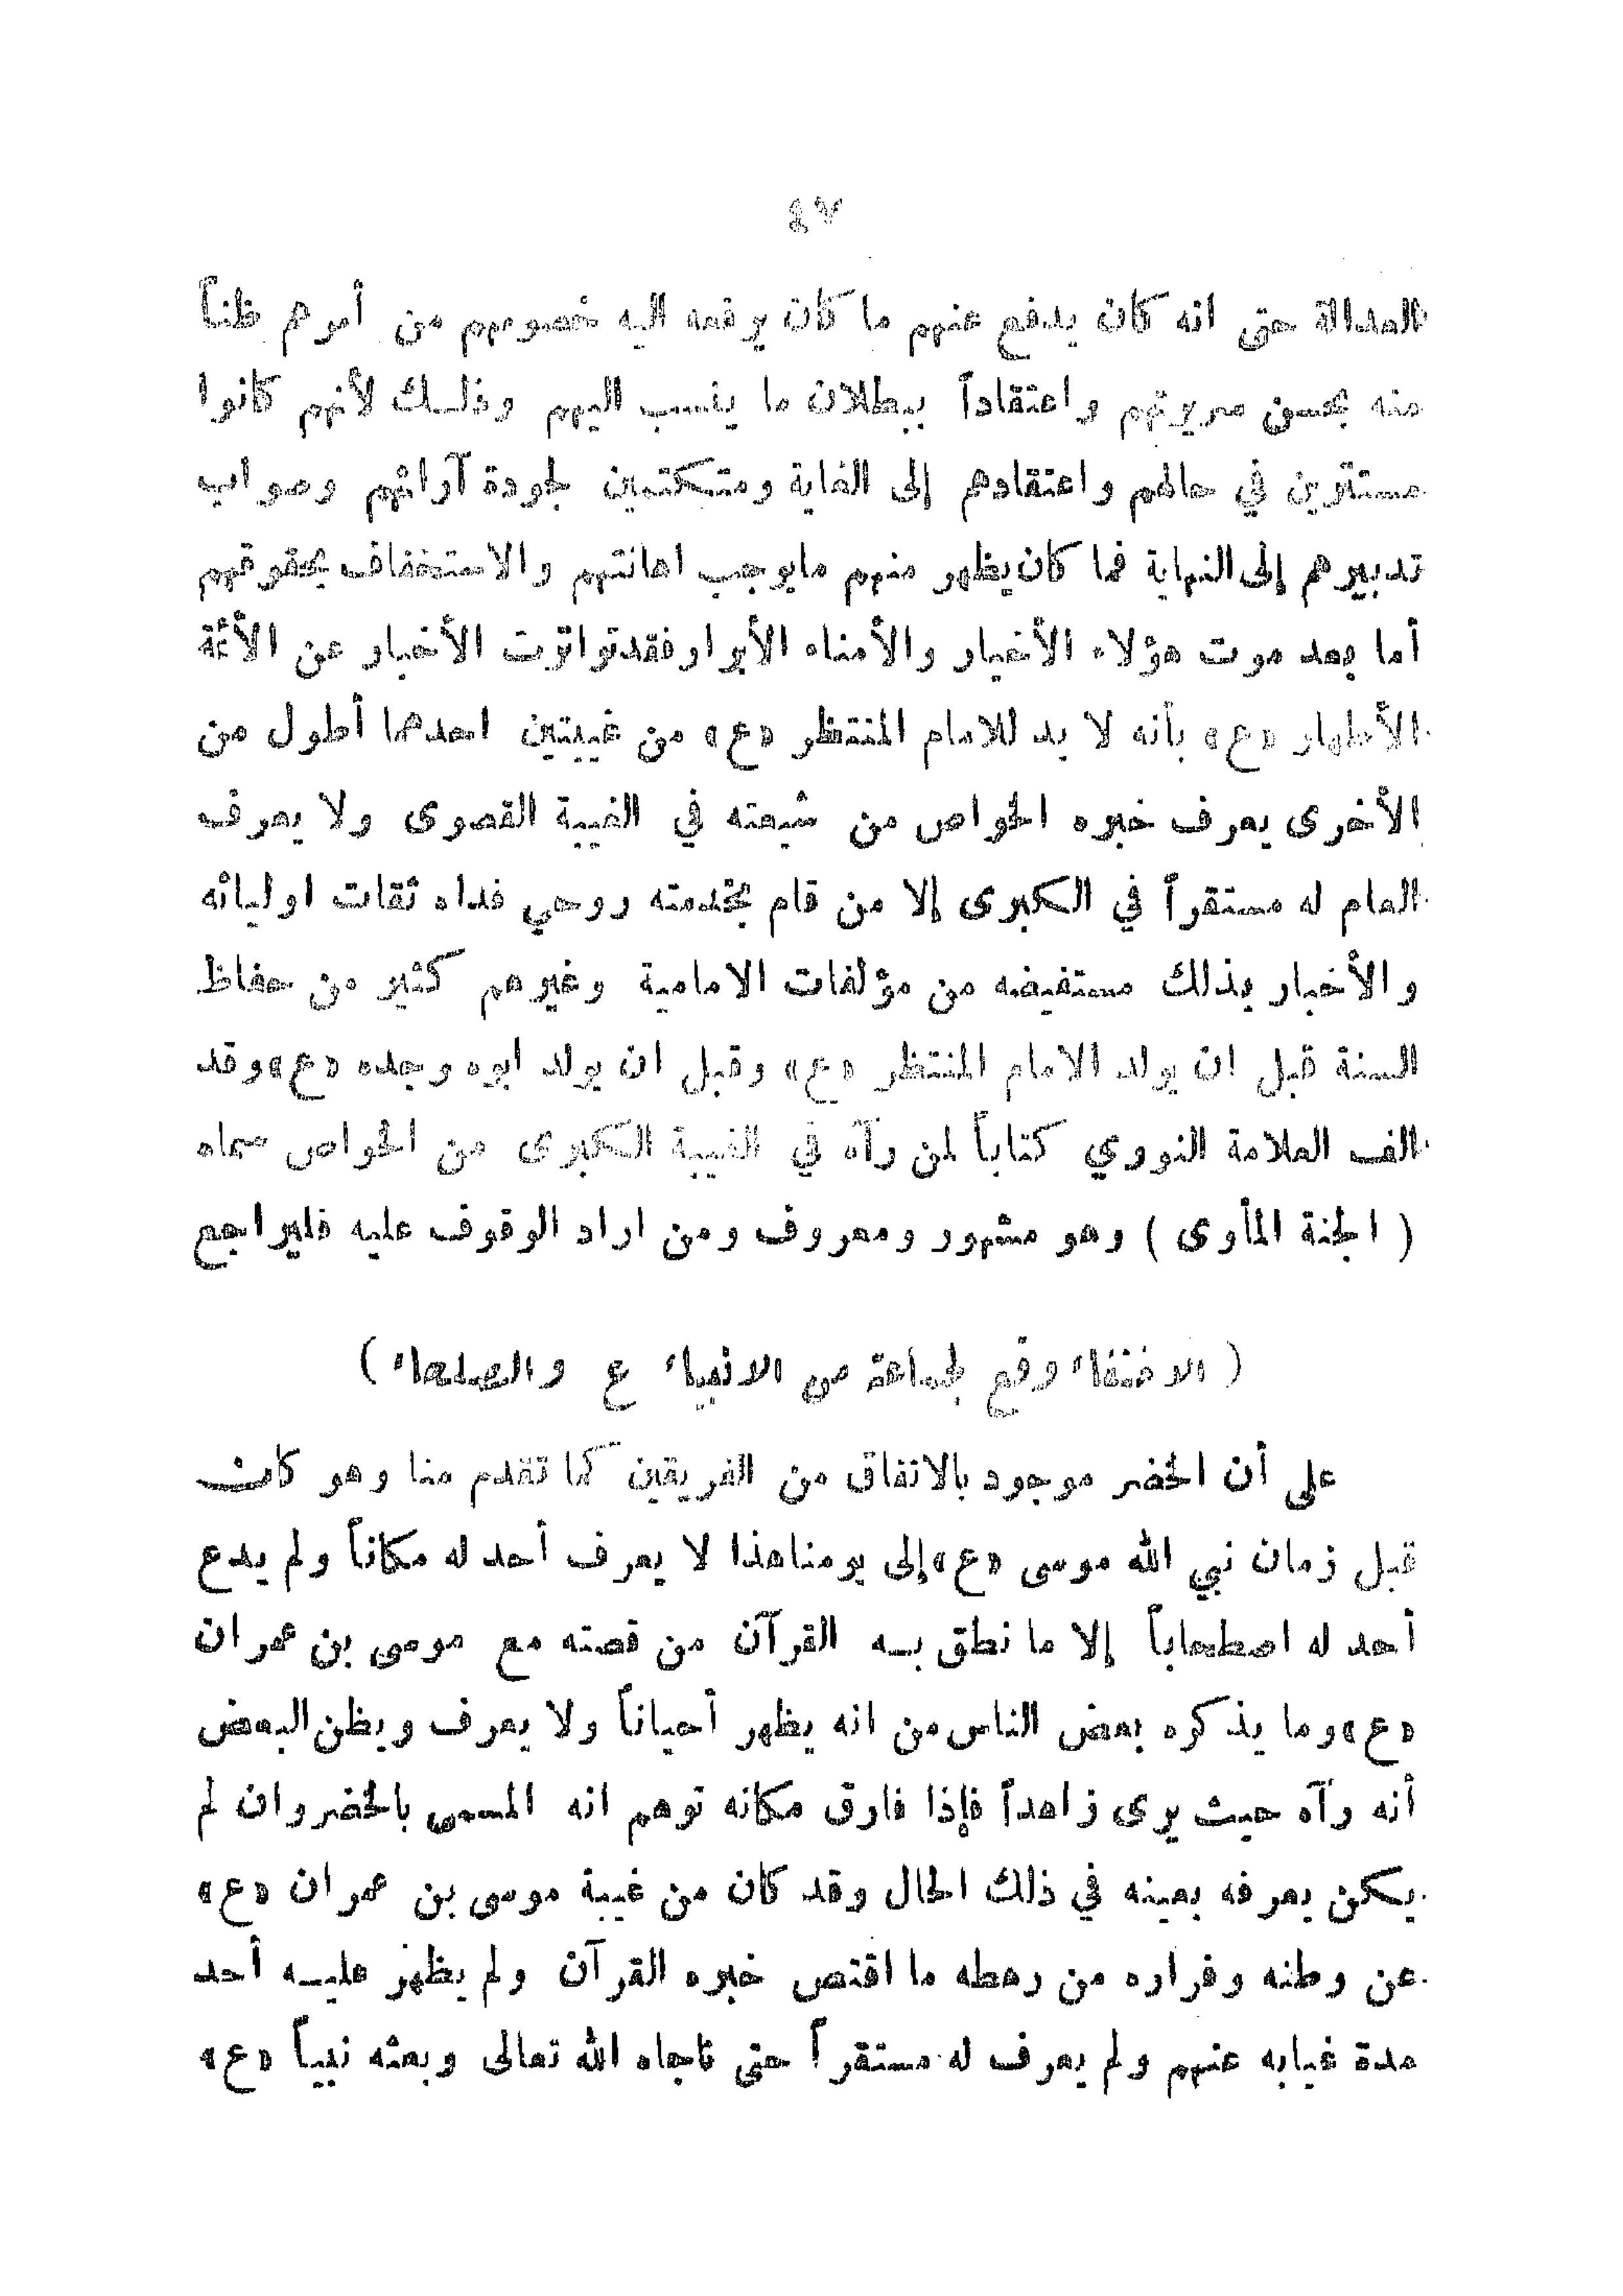 ٤٧
العدالة حتى انه كان يدفع عنهم ما كان يرفعه اليه خصومهم من أمورهم ظناً
منه بحسن سريرتهم واعتقاداً ببطلان ما ينسب اليهم وذلك لأنهم كانوا
مستترين في حالهم واعتقادهم إلى الغاية ومتكتمين لجودة آرائهم وصواب
تدبيرهم إلى النهاية فما كان يظهر منهم مايوجب اهانتهم والاستخفاف بحقوقهم
أما بعد موت هؤلاء الأخيار والأمناء الأبرار فقدتواترت الأخبار عن الأئمة
الأطهار «ع» بأنه لا بد للامام المنتظر «ع» من غيبتين احدهما أطول من
الأخرى يعرف خبره الخواص من شيعته في الغيبة القصوى ولا يعرف
العام له مستقراً في الكبرى إلا من قام بخدمته روحي فداه ثقات اوليائه
والأخبار بذلك مستفيضه من مؤلفات الامامية وغيرهم كثير من حفاظ
السنة قبل ان يولد الامام المنتظر «ع» وقبل ان يولد ابوه وجده «ع» وقد
الف العلامة النووي كتاباً لمن رآه في الغيبة الكبرى من الخواص سماه
( الجنة المأوى ) وهو مشهور ومعروف ومن اراد الوقوف عليه فليراجع
( الاختفاء وقع لجماعة من الانبياء ع والصلحاء )
على أن الخضر موجود بالاتفاق من الفريقين كما تقدم منا وهو كان
قبل زمان نبي الله موسى «ع» إلى يومناهذا لا يعرف أحد له مكاناً ولم يدع
أحد له اصطحاباً إلا ما نطق به القرآن من قصته مع موسى بن عمران
«ع» وما يذكره بعض الناس من انه يظهر أحياناً ولا يعرف ويظن البعض
أنه رآه حيث يرى زاهداً فإذا فارق مكانه توهم انه المسمى بالخضر وان لم
يكن يعرفه بعينه في ذلك الحال وقد كان من غيبة موسى بن عمران «ع»
عن وطنه وفراره من رهطه ما اقتص خبره القرآن ولم يظهر عليه أحد
مدة غيابه عنهم ولم يعرف له مستقراً حتى ناجاه الله تعالى وبعثه نبياً «ع»